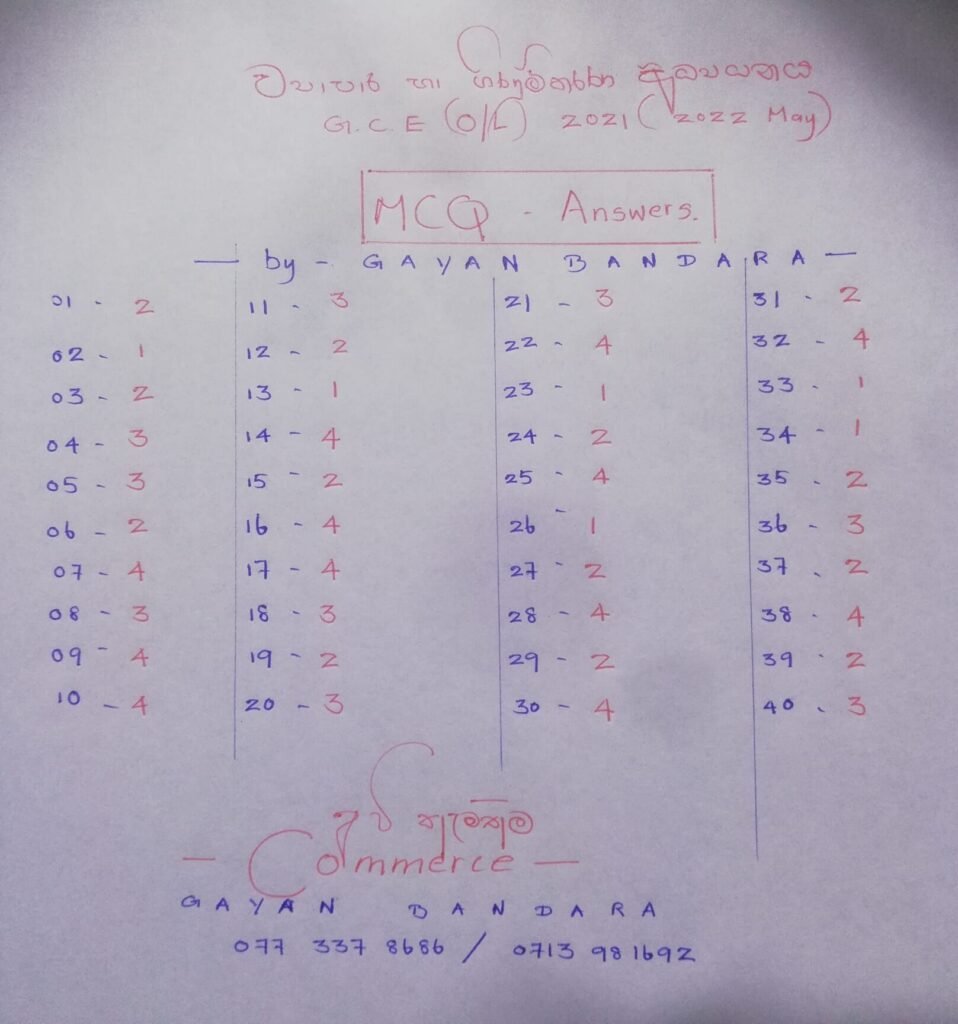 ව්‍යාපාර හා ගිණුම්කරණ අධ්‍යයනය
G.C.E (O/L) 2021 (2022 May)
MCQ - Answers.
— by - GAYAN BANDARA —
01 - 2 11 - 3 21 - 3 31 - 2
02 - 1 12 - 2 22 - 4 32 - 4
03 - 2 13 - 1 23 - 1 33 - 1
04 - 3 14 - 4 24 - 2 34 - 1
05 - 3 15 - 2 25 - 4 35 - 2
06 - 2 16 - 4 26 - 1 36 - 3
07 - 4 17 - 4 27 - 2 37 - 2
08 - 3 18 - 3 28 - 4 38 - 4
09 - 4 19 - 2 29 - 2 39 - 2
10 - 4 20 - 3 30 - 4 40 - 3
— Commerce —
GAYAN BANDARA
077 337 8686 / 0713 981692